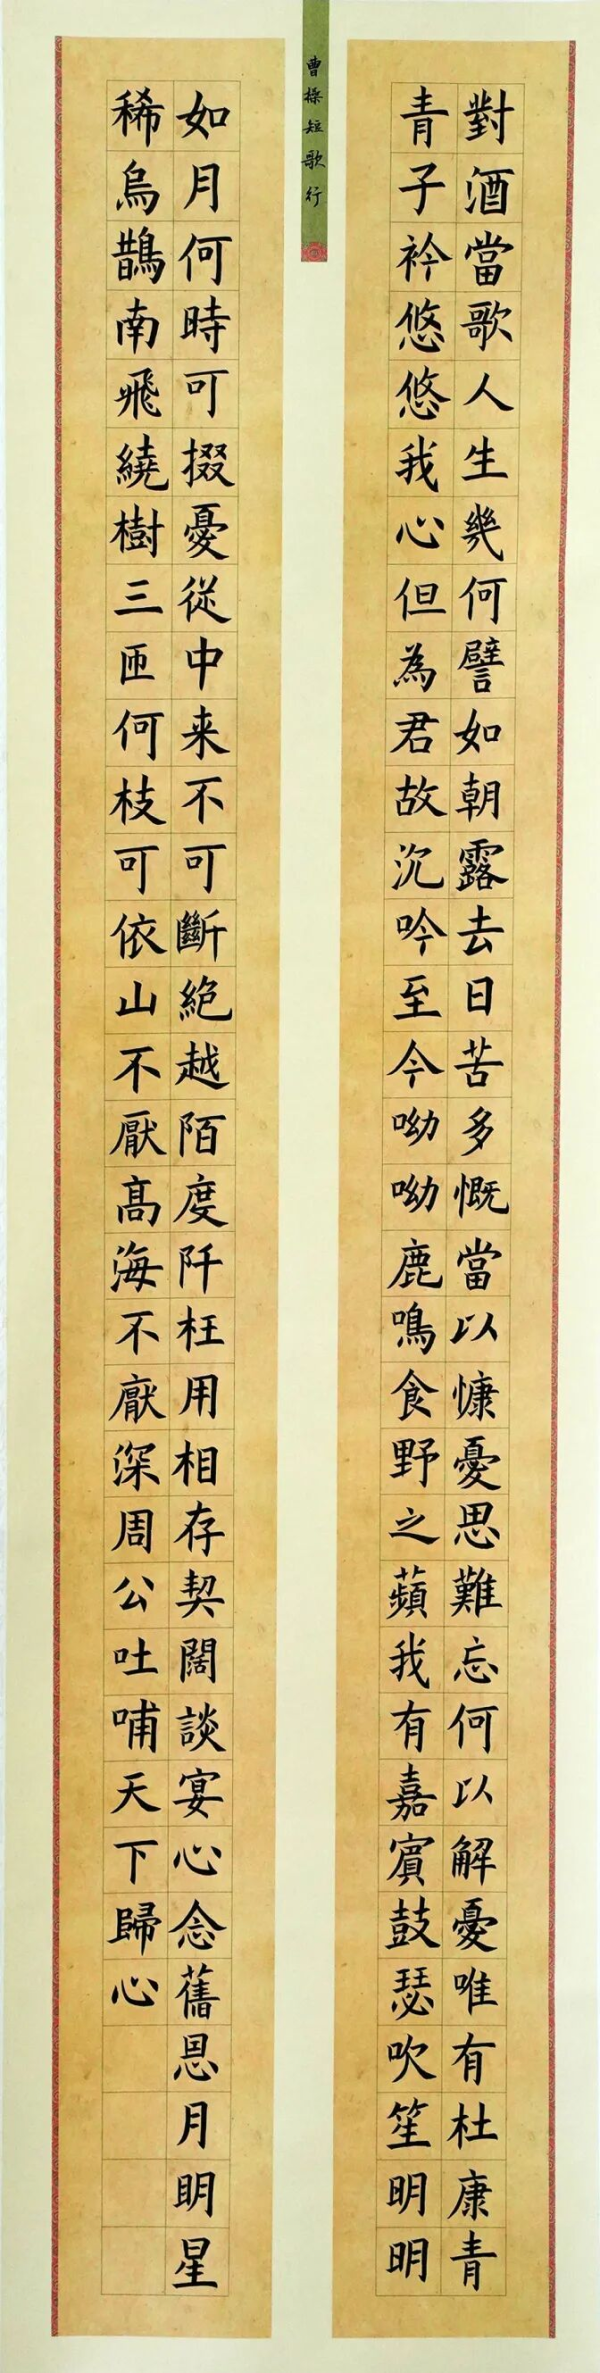 曹操短歌行
對酒當歌人生幾何譬如朝露去日苦多慨當以慷憂思難忘何以解憂唯有杜康青
青子衿悠悠我心但為君故沉吟至今呦呦鹿鳴食野之蘋我有嘉賓鼓瑟吹笙明明
如月何時可掇憂從中来不可斷絕越陌度阡枉用相存契闊談宴心念舊恩月明星
稀烏鵲南飛繞樹三匝何枝可依山不厭高海不厭深周公吐哺天下歸心